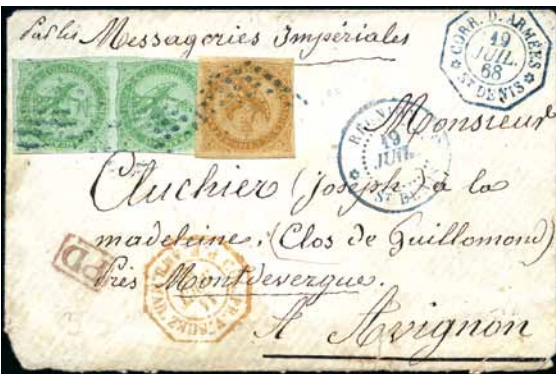 Par les Messageries Impériales
CORR. D. ARMÉES
19
JUIL.
68
ST DENIS
Monsieur
19
JUIL.
ST DENIS
Cluchier (Joseph) à la
madeleine. (Clos de Guillomond)
PD
Près Montdevergue.
A Avignon